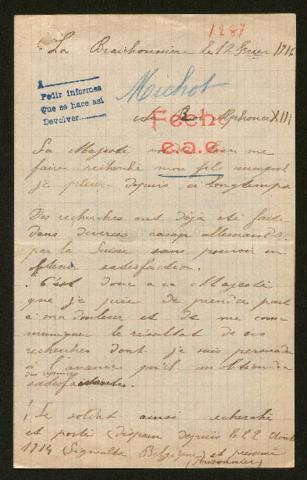 1287
La Braichonnière le 12 Février 1916
A
Pedir informes
Que se hace así
Devolver
Michot
Au Roi Alphonse XIII
Fecho
e.a.e.
Sa Majesté bien me
faire recherché mon fils auquel
je pleure depuis si longtemps
Des recherches ont déjà été faite
dans diverses camps allemands
par la Suisse sans pouvoir en
obtenir satisfaction.
C'est donc a sa Majesté
que je prie de prendre part
a ma douleur et de me com
muniquer le résultat de ses
recherches dont je suis persuadé
à l'avance qu'il m'obtiendra
satisfaction
Le soldat ainsi recherché
est porté disparu depuis le 22 Août
1914 Signeulx Belgique et présumé
prisonnier